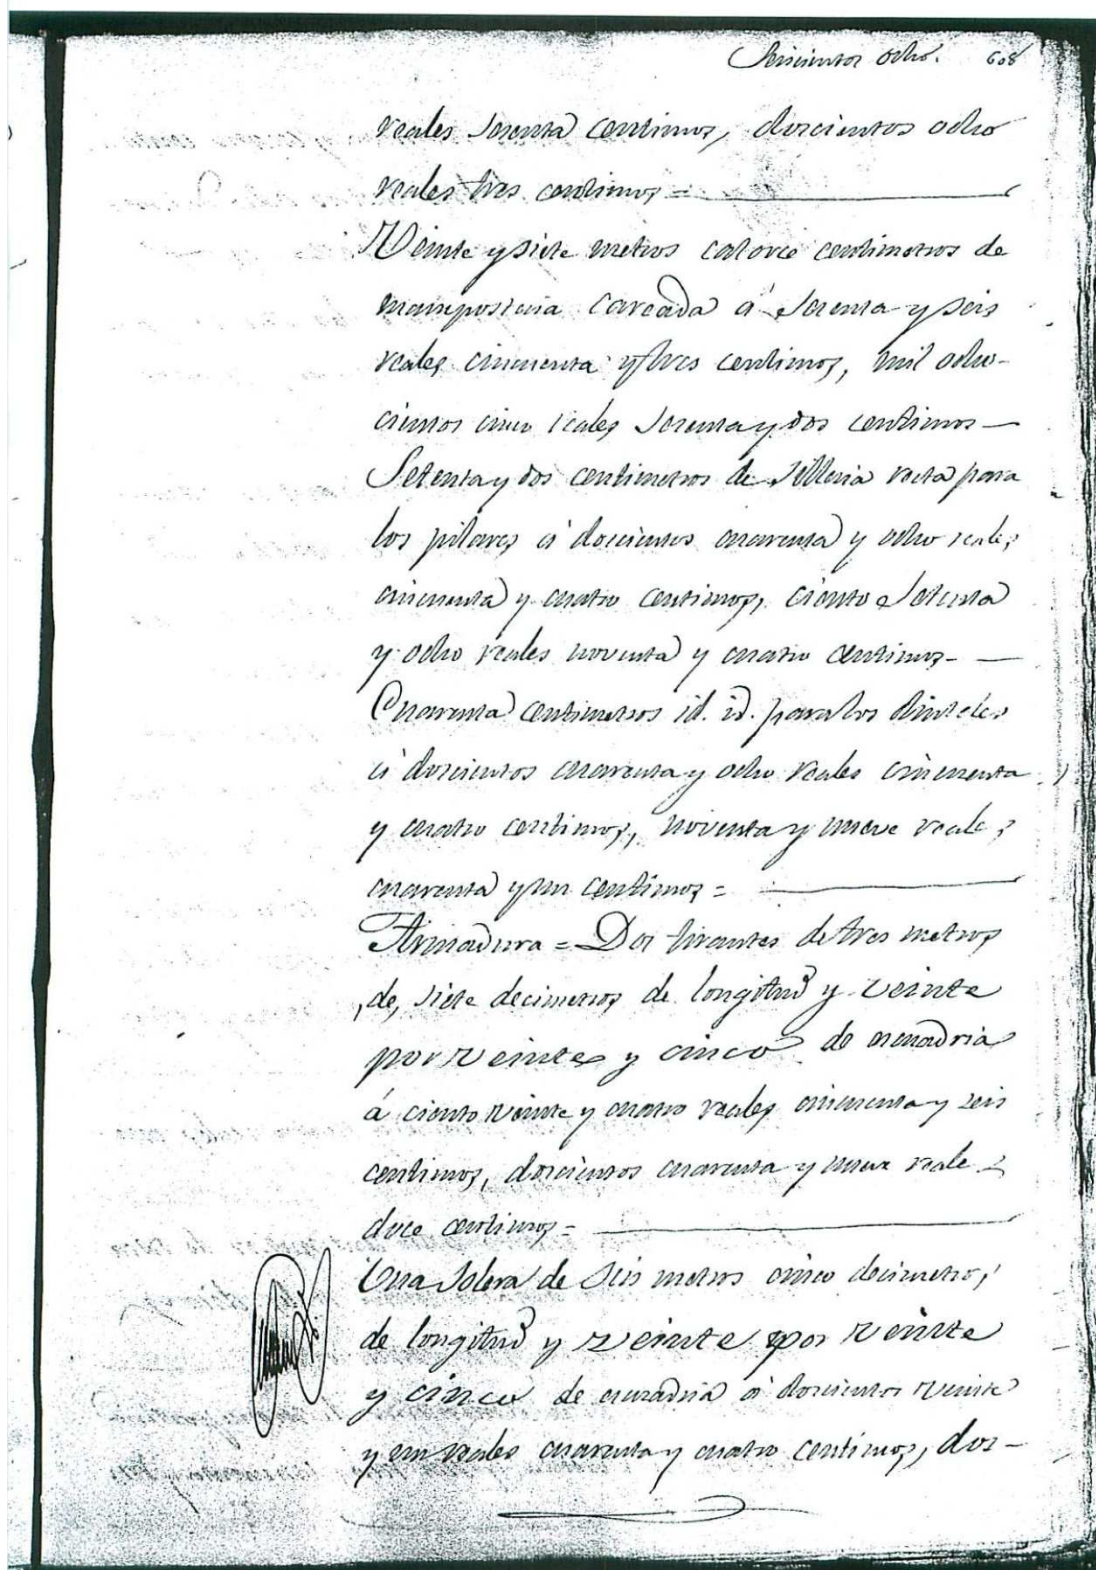 Seiscientos ocho. 608
reales sesenta centimos, doscientos ocho
reales tres centimos =
Veinte y siete metros catorce centimetros de
mamposteria careada á sesenta y seis
reales cincuenta y tres centimos, mil ocho-
cientos cinco reales sesenta y dos centimos —
Setenta y dos centimetros de silleria recta para
los pilares á doscientos cuarenta y ocho reales
cincuenta y cuatro centimos, ciento setenta
y ocho reales noventa y cuatro centimos - —
Cuarenta centimetros id. id. para los dinteles
á doscientos cuarenta y ocho reales cincuenta
y cuatro centimos, noventa y nueve reales
cuarenta y un centimos =
Armadura = Dos tirantes de tres metros
de, siete decimetros de longitud y veinte
por veinte y cinco de escuadria
á ciento veinte y cuatro reales cincuenta y seis
centimos, doscientos cuarenta y nueve reales
doce centimos =
Una solera de seis metros cinco decimetros
de longitud y veinte por veinte
y cinco de escuadria á doscientos veinte
y un reales cuarenta y cuatro centimos, dos-